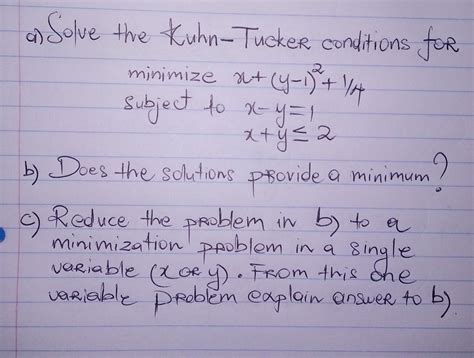 a) Solve the Kuhn-Tucker conditions for
minimize x+(y-1)²+1/4
subject to x-y=1
x+y≤2
b) Does the solutions provide a minimum?
c) Reduce the problem in b) to a
minimization problem in a single
variable (x or y). From this one
variable problem explain answer to b).